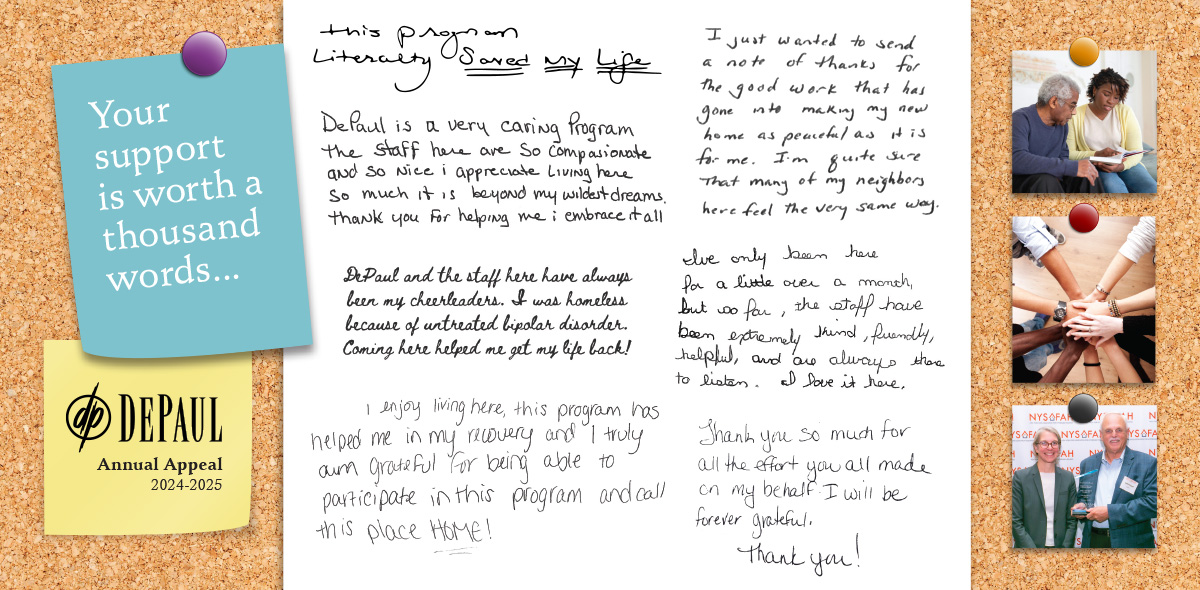 Your
support
is worth a
thousand
words...
dp DEPAUL
Annual Appeal
2024-2025
this program
Literalty Saved My Life
DePaul is a very caring Program
The Staff here are So Compasionate
and So Nice i appreciate Living here
So much it is beyond my wildest dreams.
Thank you For helping me i embrace it all
DePaul and the staff here have always
been my cheerleaders. I was homeless
because of untreated bipolar disorder.
Coming here helped me get my life back!
I enjoy living here, this program has
helped me in my recovery and I truly
aum grateful for being able to
participate in this program and call
this place HOME!
I just wanted to send
a note of thanks for
the good work that has
gone into making my new
home as peaceful as it is
for me. I'm quite sure
that many of my neighbors
here feel the very same way.
I've only been here
for a little over a month,
but so far, the staff have
been extremely kind, friendly,
helpful, and are always there
to listen. I love it here.
Thank you so much for
all the effort you all made
on my behalf. I will be
forever grateful.
Thank you!
NYSOFAH
NYSOFAH
NYSOFAH